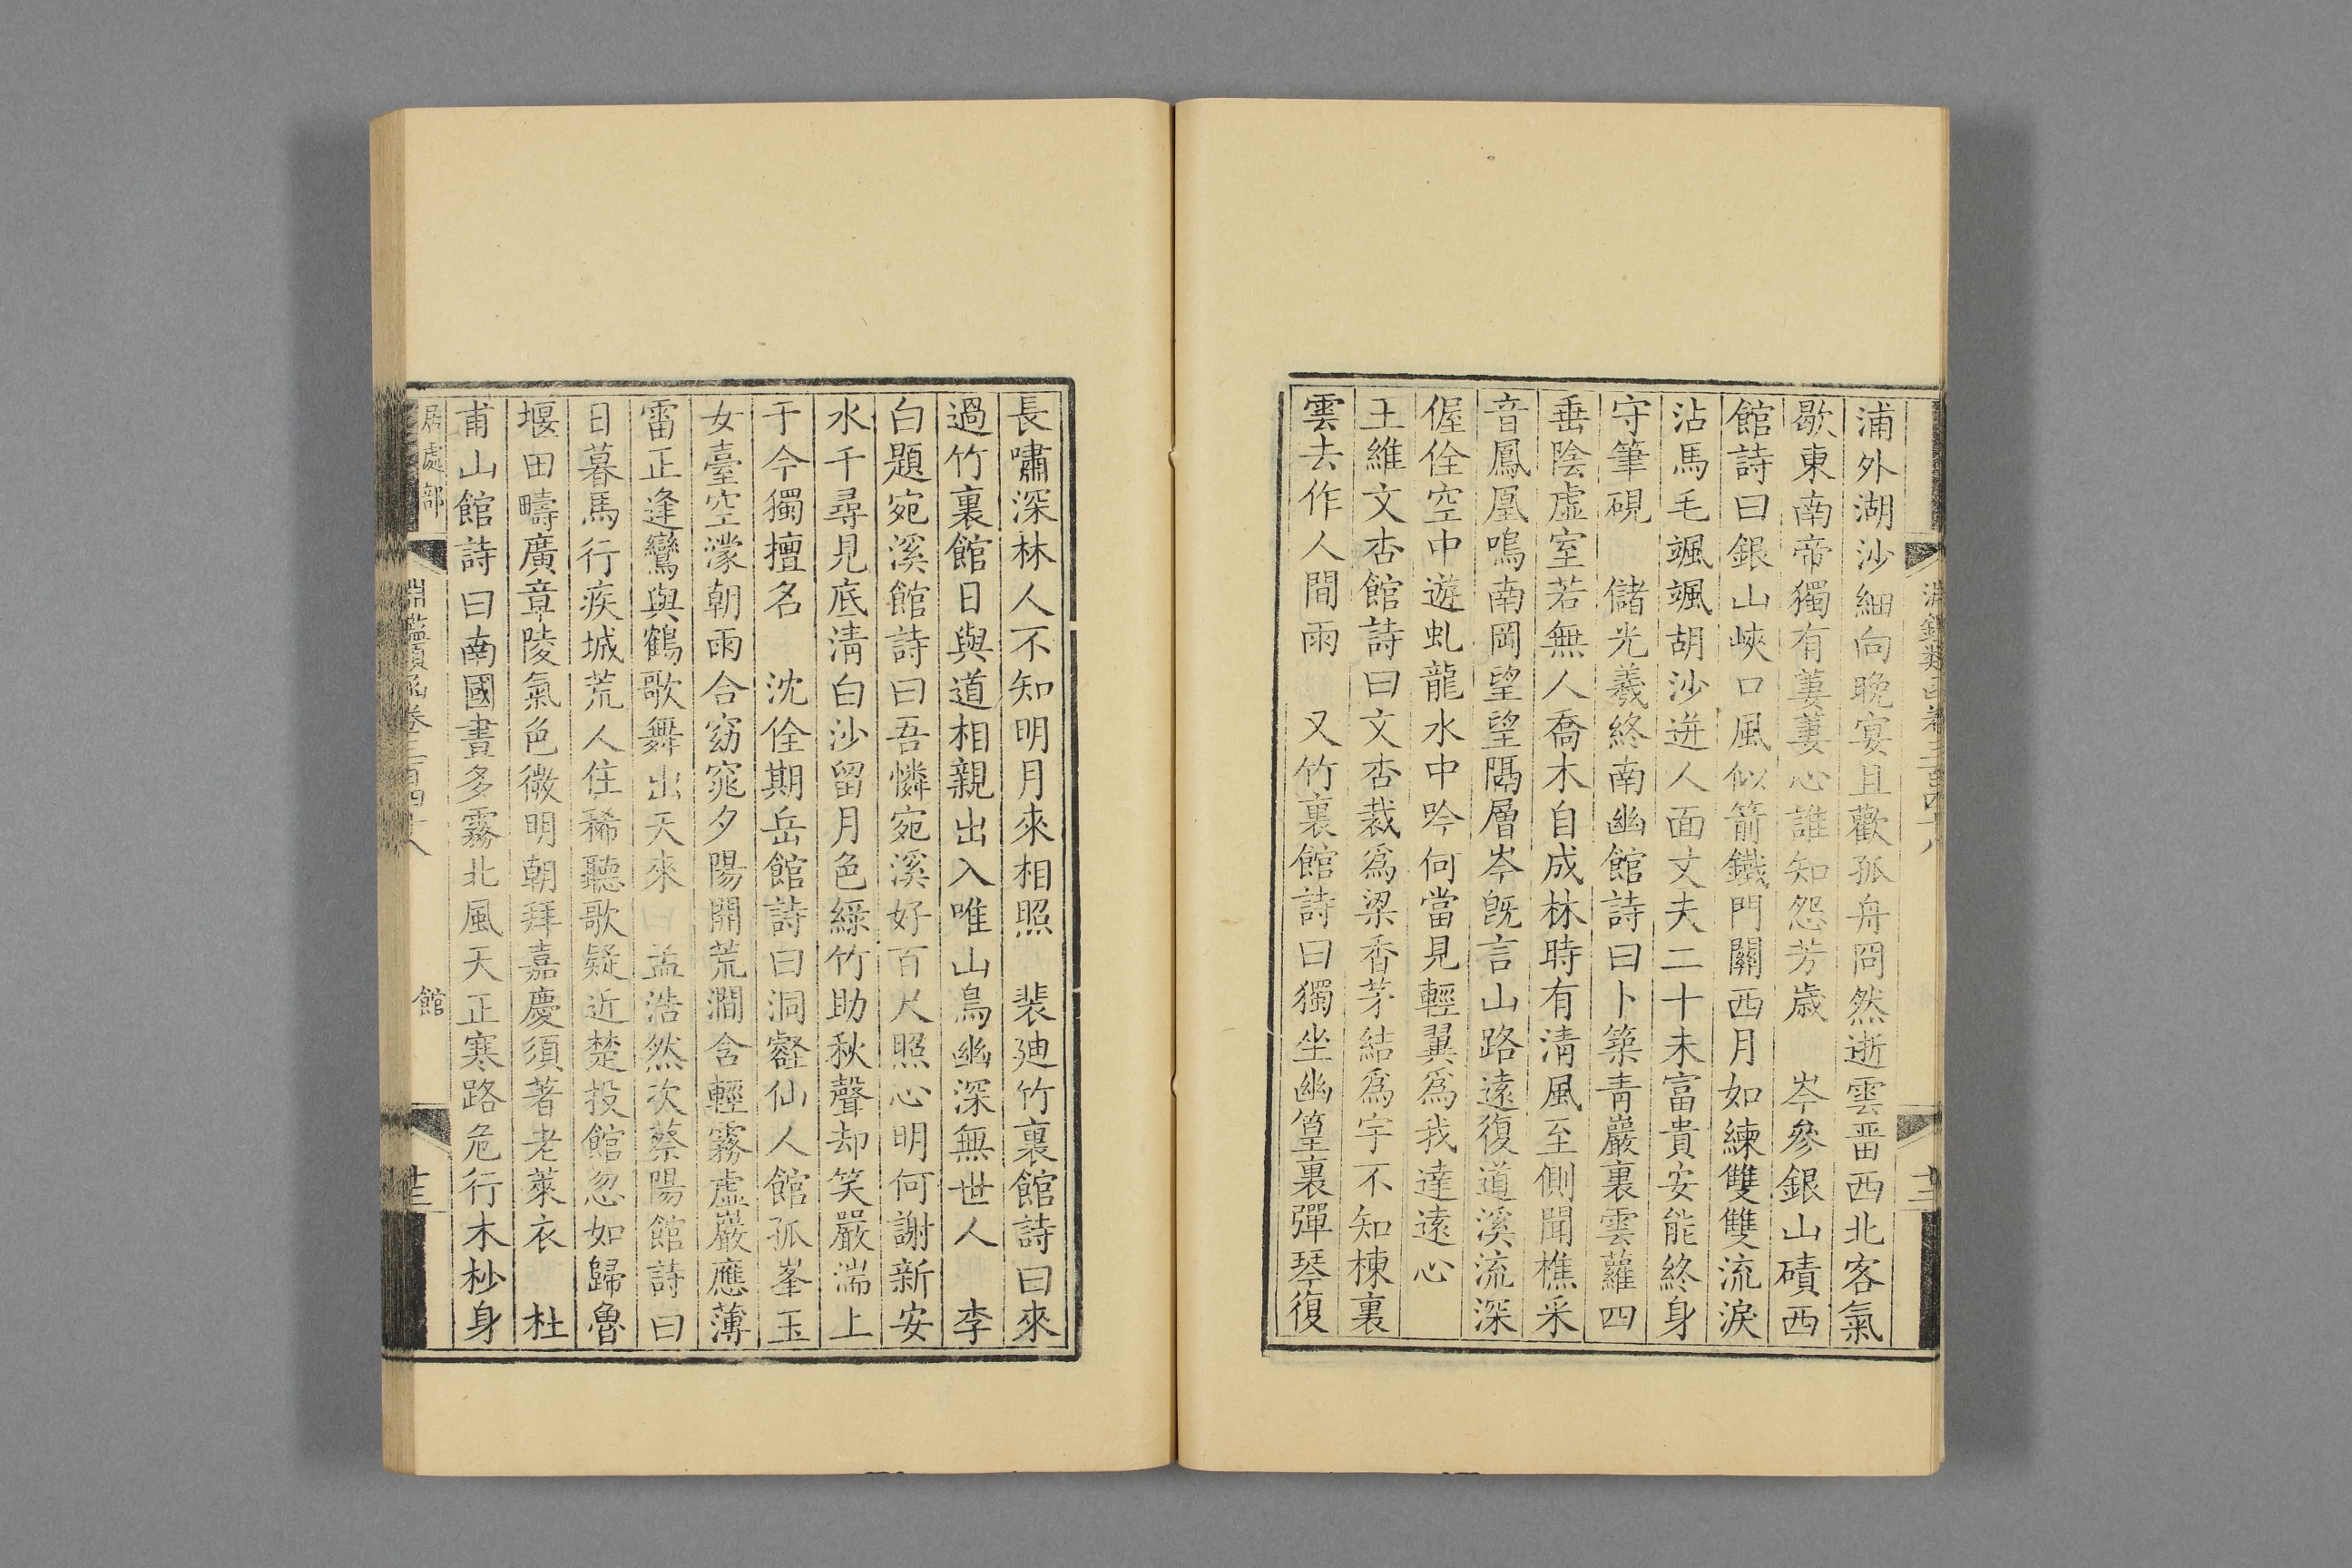 浦外湖沙細向晚宴且歡孤舟冏然逝雲畱西北客氣
歇東南帝獨有萋萋心誰知怨芳歳　岑參銀山磧西
館詩曰銀山峽口風似箭鐵門關西月如練雙雙流淚
沾馬毛颯颯胡沙迸人面丈夫二十未富貴安能終身
守筆硯　儲光羲終南幽館詩曰卜築青巖裏雲蘿四
垂陰虛室若無人喬木自成林時有清風至側聞樵采
音鳳凰鳴南岡望望隔層岑旣言山路遠復道溪流深
偓佺空中遊虬龍水中吟何當見輕翼爲我達遠心
王維文杏館詩曰文杏裁爲梁香茅結爲宇不知棟裏
雲去作人間雨　又竹裏館詩曰獨坐幽篁裏彈琴復
長嘯深林人不知明月來相照　裴廸竹裏館詩曰來
過竹裏館日與道相親出入唯山鳥幽深無世人　李
白題宛溪館詩曰吾憐宛溪好百尺照心明何謝新安
水千尋見底淸白沙留月色綠竹助秋聲却笑嚴湍上
于今獨擅名　沈佺期岳館詩曰洞壑仙人館孤峯玉
女臺空濛朝雨合窈窕夕陽開荒澗含輕霧虛巖應薄
雷正逢鸞與鶴歌舞出天來　孟浩然次蔡陽館詩曰
日暮馬行疾城荒人住稀聽歌疑近楚投館忽如歸魯
堰田疇廣章陵氣色微明朝拜嘉慶須著老萊衣　杜
甫山館詩曰南國晝多霧北風天正寒路危行木杪身
居處部
淵鑑類函卷三百四十八
館
十三